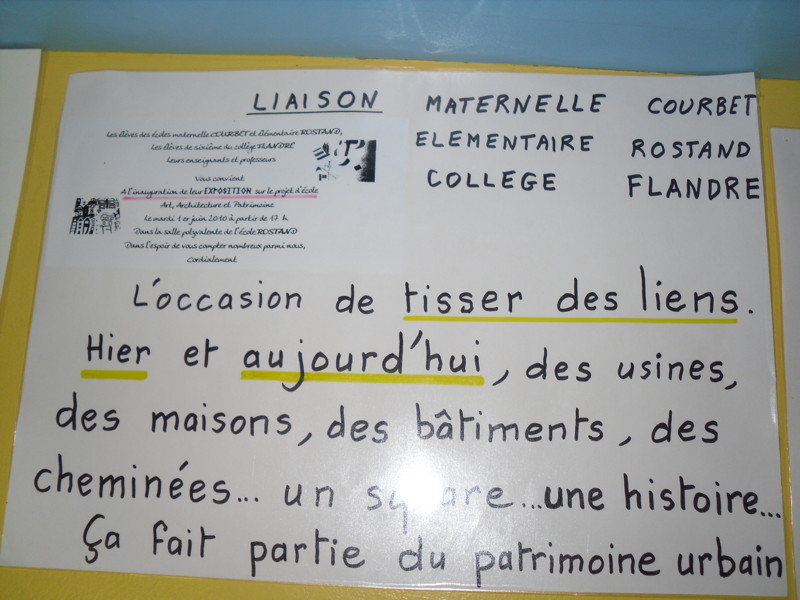 LIAISON MATERNELLE COURBET
ELEMENTAIRE ROSTAND
COLLEGE FLANDRE
Les élèves des écoles maternelle COURBET et élémentaire ROSTAND,
Les élèves de sixième du collège FLANDRE
Leurs enseignants et professeurs
Vous convient
A l'inauguration de leur EXPOSITION sur le projet d'école
Art, Architecture et Patrimoine
Le mardi 1er juin 2010 à partir de 17 h
Dans la salle polyvalente de l'école ROSTAND
Dans l'espoir de vous compter nombreux parmi nous,
Cordialement
L'occasion de tisser des liens.
Hier et aujourd'hui, des usines,
des maisons, des bâtiments, des
cheminées... un square...une histoire...
Ça fait partie du patrimoine urbain